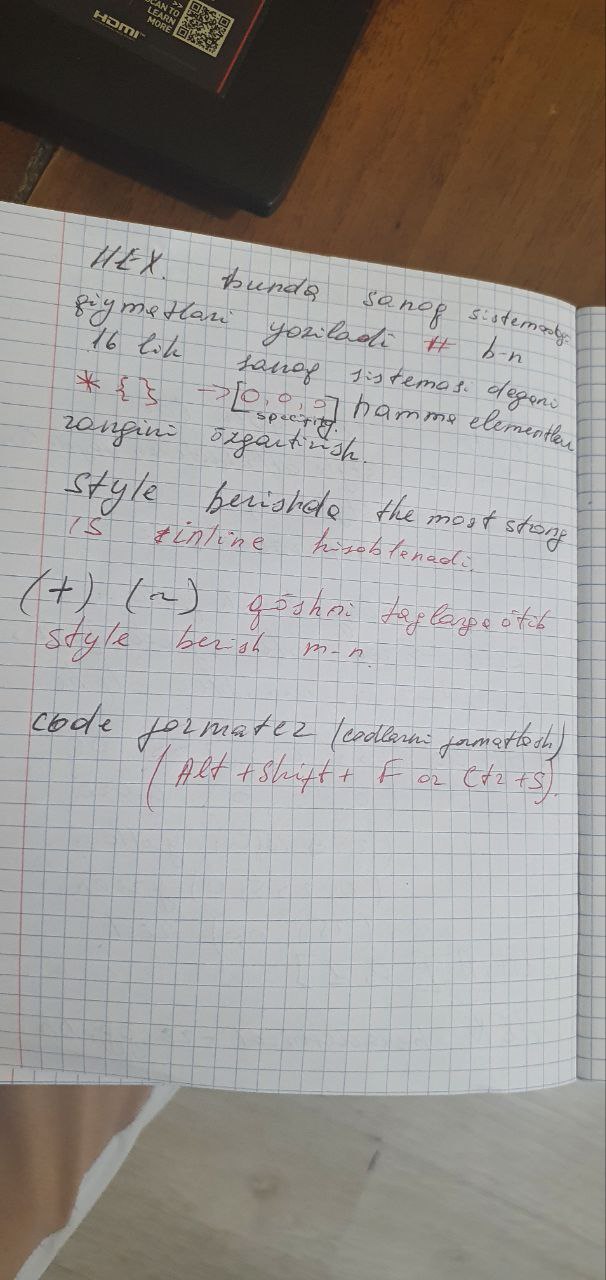 SCAN TO
LEARN
MORE
HDMI™
HEX. bunda sanoq
qiymatlari yoziladi # b-n
16 lik sanoq sistemasi degani
* {} → [0, 0, 0] hamma elementlar
specifity.
rangini özgartirish.
style berishda the most strong
is inline hisoblanadi.
(+) (~) qöshni taglarga ötib
style berish m-n.
code formater (codlarni formatlash)
(Alt + Shift + F or Ctr + S).